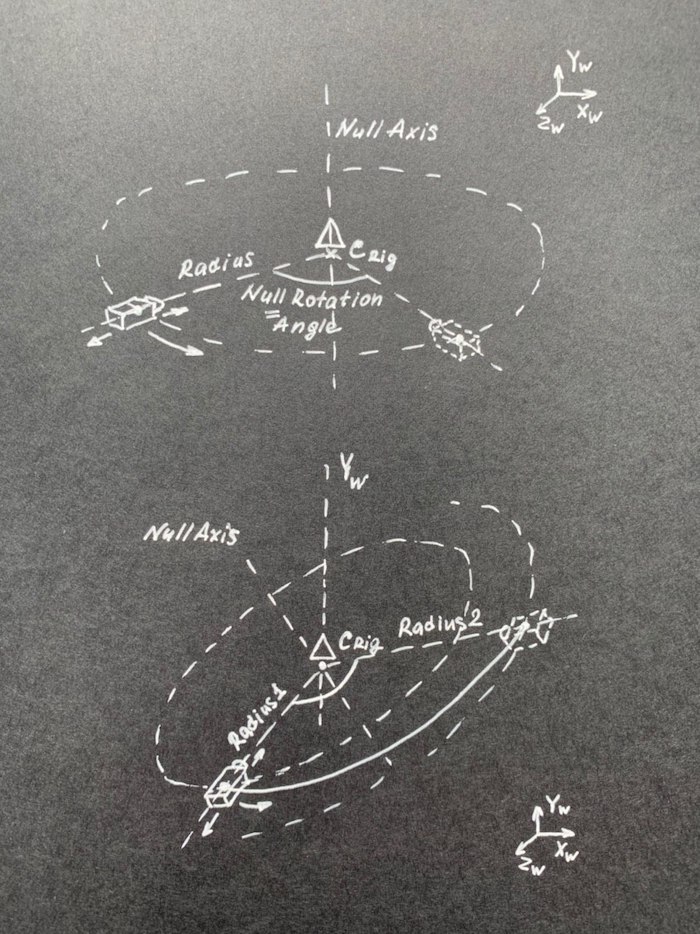 Yw
Xw
Zw
Null Axis
Radius
CRig
Null Rotation
=
Angle
Yw
Null Axis
CRig
Radius 2
Radius 1
Yw
Xw
Zw